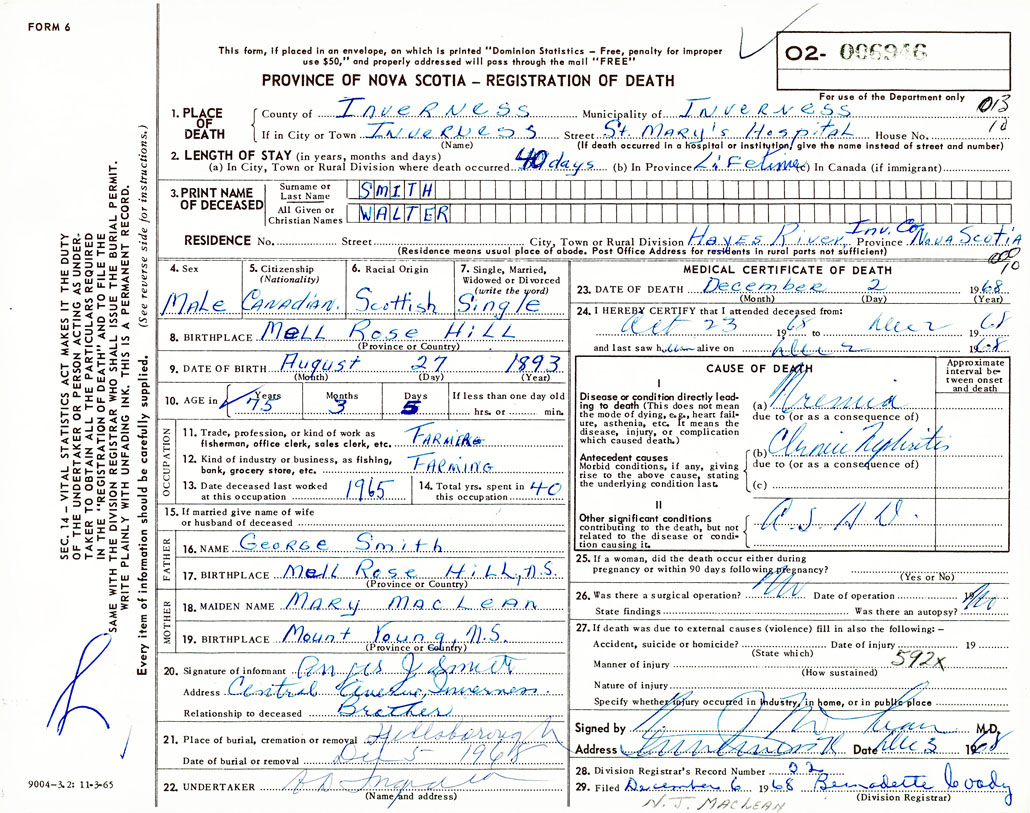 FORM 6
This form, if placed in an envelope, on which is printed "Dominion Statistics – Free, penalty for improper
use $50," and properly addressed will pass through the mail "FREE"
PROVINCE OF NOVA SCOTIA – REGISTRATION OF DEATH
O2- 006946
For use of the Department only
013
10
SEC. 14 – VITAL STATISTICS ACT MAKES IT THE DUTY
OF THE UNDERTAKER OR PERSON ACTING AS UNDER-
TAKER TO OBTAIN ALL THE PARTICULARS REQUIRED
IN THE "REGISTRATION OF DEATH" AND TO FILE THE
SAME WITH THE DIVISION REGISTRAR WHO SHALL ISSUE THE BURIAL PERMIT.
WRITE PLAINLY WITH UNFADING INK. THIS IS A PERMANENT RECORD.
Every item of information should be carefully supplied. (See reverse side for instructions.)
1. PLACE OF DEATH County of Inverness Municipality of Inverness
If in City or Town Inverness Street St. Mary's Hospital House No.
(Name) (If death occurred in a hospital or institution, give the name instead of street and number)
2. LENGTH OF STAY (in years, months and days)
(a) In City, Town or Rural Division where death occurred 40 days (b) In Province Lifetime (c) In Canada (if immigrant)
3. PRINT NAME OF DECEASED Surname or Last Name SMITH
All Given or Christian Names WALTER
RESIDENCE No. Street City, Town or Rural Division Hayes River, Inv. Co. Province Nova Scotia
(Residence means usual place of abode. Post Office Address for residents in rural parts not sufficient)
000
10
4. Sex 5. Citizenship (Nationality) 6. Racial Origin 7. Single, Married, Widowed or Divorced (write the word)
Male Canadian. Scottish Single
8. BIRTHPLACE Mell Rose Hill
(Province or Country)
9. DATE OF BIRTH August 27 1893
(Month) (Day) (Year)
10. AGE in Years Months Days If less than one day old
75 3 5 hrs. or min.
OCCUPATION
11. Trade, profession, or kind of work as fisherman, office clerk, sales clerk, etc. Farming
12. Kind of industry or business, as fishing, bank, grocery store, etc. Farming
13. Date deceased last worked at this occupation 1965 14. Total yrs. spent in this occupation 40
15. If married give name of wife or husband of deceased
FATHER
16. NAME George Smith
17. BIRTHPLACE Mell Rose Hill, N.S.
(Province or Country)
MOTHER
18. MAIDEN NAME Mary MacLean
19. BIRTHPLACE Mount Young, N.S.
(Province or Country)
20. Signature of informant Angus J Smith
Address Central Avenue, Inverness.
Relationship to deceased Brother
21. Place of burial, cremation or removal Hillsborough
Date of burial or removal Dec 5 1968
22. UNDERTAKER
(Name and address)
9004-3.2: 11-3-65
MEDICAL CERTIFICATE OF DEATH
23. DATE OF DEATH December 2 1968
(Month) (Day) (Year)
24. I HEREBY CERTIFY that I attended deceased from:
Oct 23 1968 to Dec 2 1968
and last saw him alive on Dec 2 1968
CAUSE OF DEATH
Approximate interval between onset and death
I
Disease or condition directly leading to death (This does not mean the mode of dying, e.g., heart failure, asthenia, etc. It means the disease, injury, or complication which caused death.)
(a) Uremia
due to (or as a consequence of)
Antecedent causes
Morbid conditions, if any, giving rise to the above cause, stating the underlying condition last.
(b) Chronic Nephritis
due to (or as a consequence of)
(c)
II
Other significant conditions contributing to the death, but not related to the disease or condition causing it.
A.S.H.D.
25. If a woman, did the death occur either during pregnancy or within 90 days following pregnancy?
(Yes or No)
26. Was there a surgical operation? No Date of operation 19
State findings Was there an autopsy? No
27. If death was due to external causes (violence) fill in also the following: –
Accident, suicide or homicide? Date of injury 19
(State which)
592x
Manner of injury
(How sustained)
Nature of injury
Specify whether injury occurred in industry, in home, or in public place
Signed by M.D.
Address Date Dec 3 1968
28. Division Registrar's Record Number 22
29. Filed December 6 1968 Bernadette
(Division Registrar)
N. J. MacLean